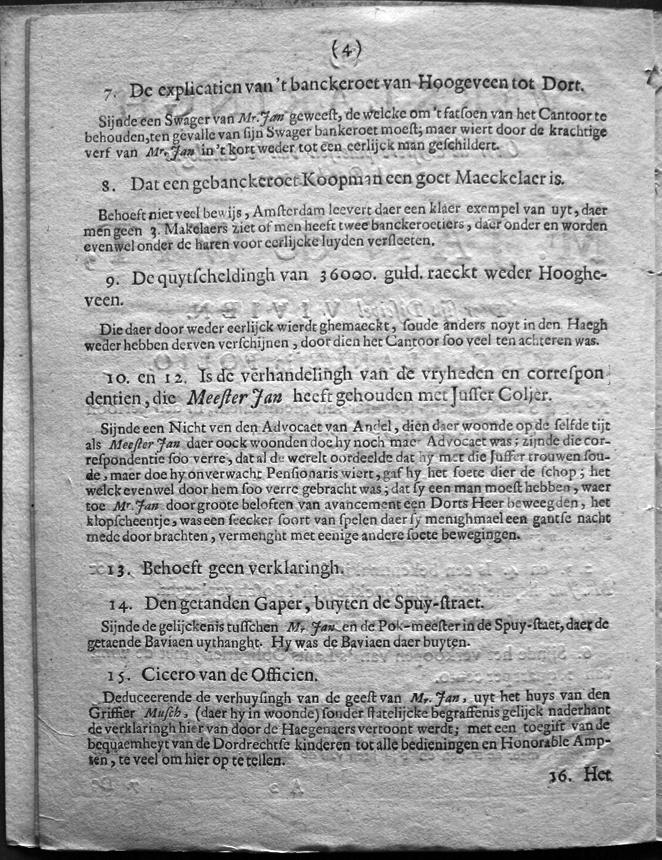 (4)
7. De explicatien van 't banckeroet van Hoogeveen tot Dort.
Sijnde een Swager van Mr. Jan geweest, de welcke om 't fatsoen van het Cantoor te
behouden, ten gevalle van sijn Swager bankeroet moest; maer wiert door de krachtige
verf van Mr. Jan in 't kort weder tot een eerlijck man geschildert.
8. Dat een gebanckeroet Koopman een goet Maeckelaer is.
Behoeft niet veel bewijs, Amsterdam leevert daer een klaer exempel van uyt, daer
men geen 3. Makelaers ziet of men heeft twee banckeroetiers, daer onder en worden
evenwel onder de haren voor eerlijcke luyden versleeten.
9. De quytscheldingh van 36000. guld. raeckt weder Hooghe-
veen.
Die daer door weder eerlijck wierdt ghemaeckt, soude anders noyt in den Haegh
weder hebben derven verschijnen, door dien het Cantoor soo veel ten achteren was.
10. en 12. Is de verhandelingh van de vryheden en correspon
dentien, die Meester Jan heeft gehouden met Juffer Coljer.
Sijnde een Nicht ven den Advocaet van Andel, dien daer woonde op de selfde tijt
als Meester Jan daer oock woonden doe hy noch mae Advocaet was; zijnde die cor-
respondentie soo verre, dat al de werelt oordeelde dat hy met die Juffer trouwen sou-
de, maer doe hy onverwacht Pensionaris wiert, gaf hy het soete dier de schop; het
welck evenwel door hem soo verre gebracht was; dat sy een man moest hebben, waer
toe Mr. Jan door groote beloften van avancement een Dorts Heer beweegden, het
klopscheentje, was een seecker soort van spelen daer sy menighmael een gantse nacht
mede door brachten, vermenght met eenige andere soete bewegingen.
13. Behoeft geen verklaringh.
14. Den getanden Gaper, buyten de Spuy-straet.
Sijnde de gelijckenis tusschen Mr. Jan en de Pok-meester in de Spuy-staet, daer de
getaende Baviaen uythanght. Hy was de Baviaen daer buyten.
15. Cicero van de Officien.
Deduceerende de verhuysingh van de geest van Mr. Jan, uyt het huys van den
Griffier Musch, (daer hy in woonde) sonder statelijcke begraffenis gelijck naderhant
de verklaringh hier van door de Haegenaers vertoont werdt; met een toegift van de
bequaemheyt van de Dordrechtse kinderen tot alle bedieningen en Honorable Amp-
ten, te veel om hier op te tellen.
16. Het